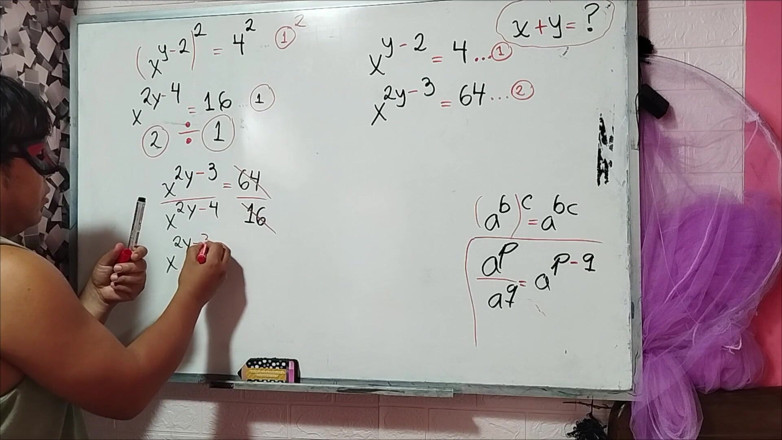 (x^{y-2})^2 = 4^2 ... ①^2
x^{2y-4} = 16 ... ①
② ÷ ①
x^{2y-3}/x^{2y-4} = 64/16
x^{2y-3
x+y=?
x^{y-2} = 4 ... ①
x^{2y-3} = 64 ... ②
(a^b)^c = a^{bc}
a^p/a^q = a^{p-q}